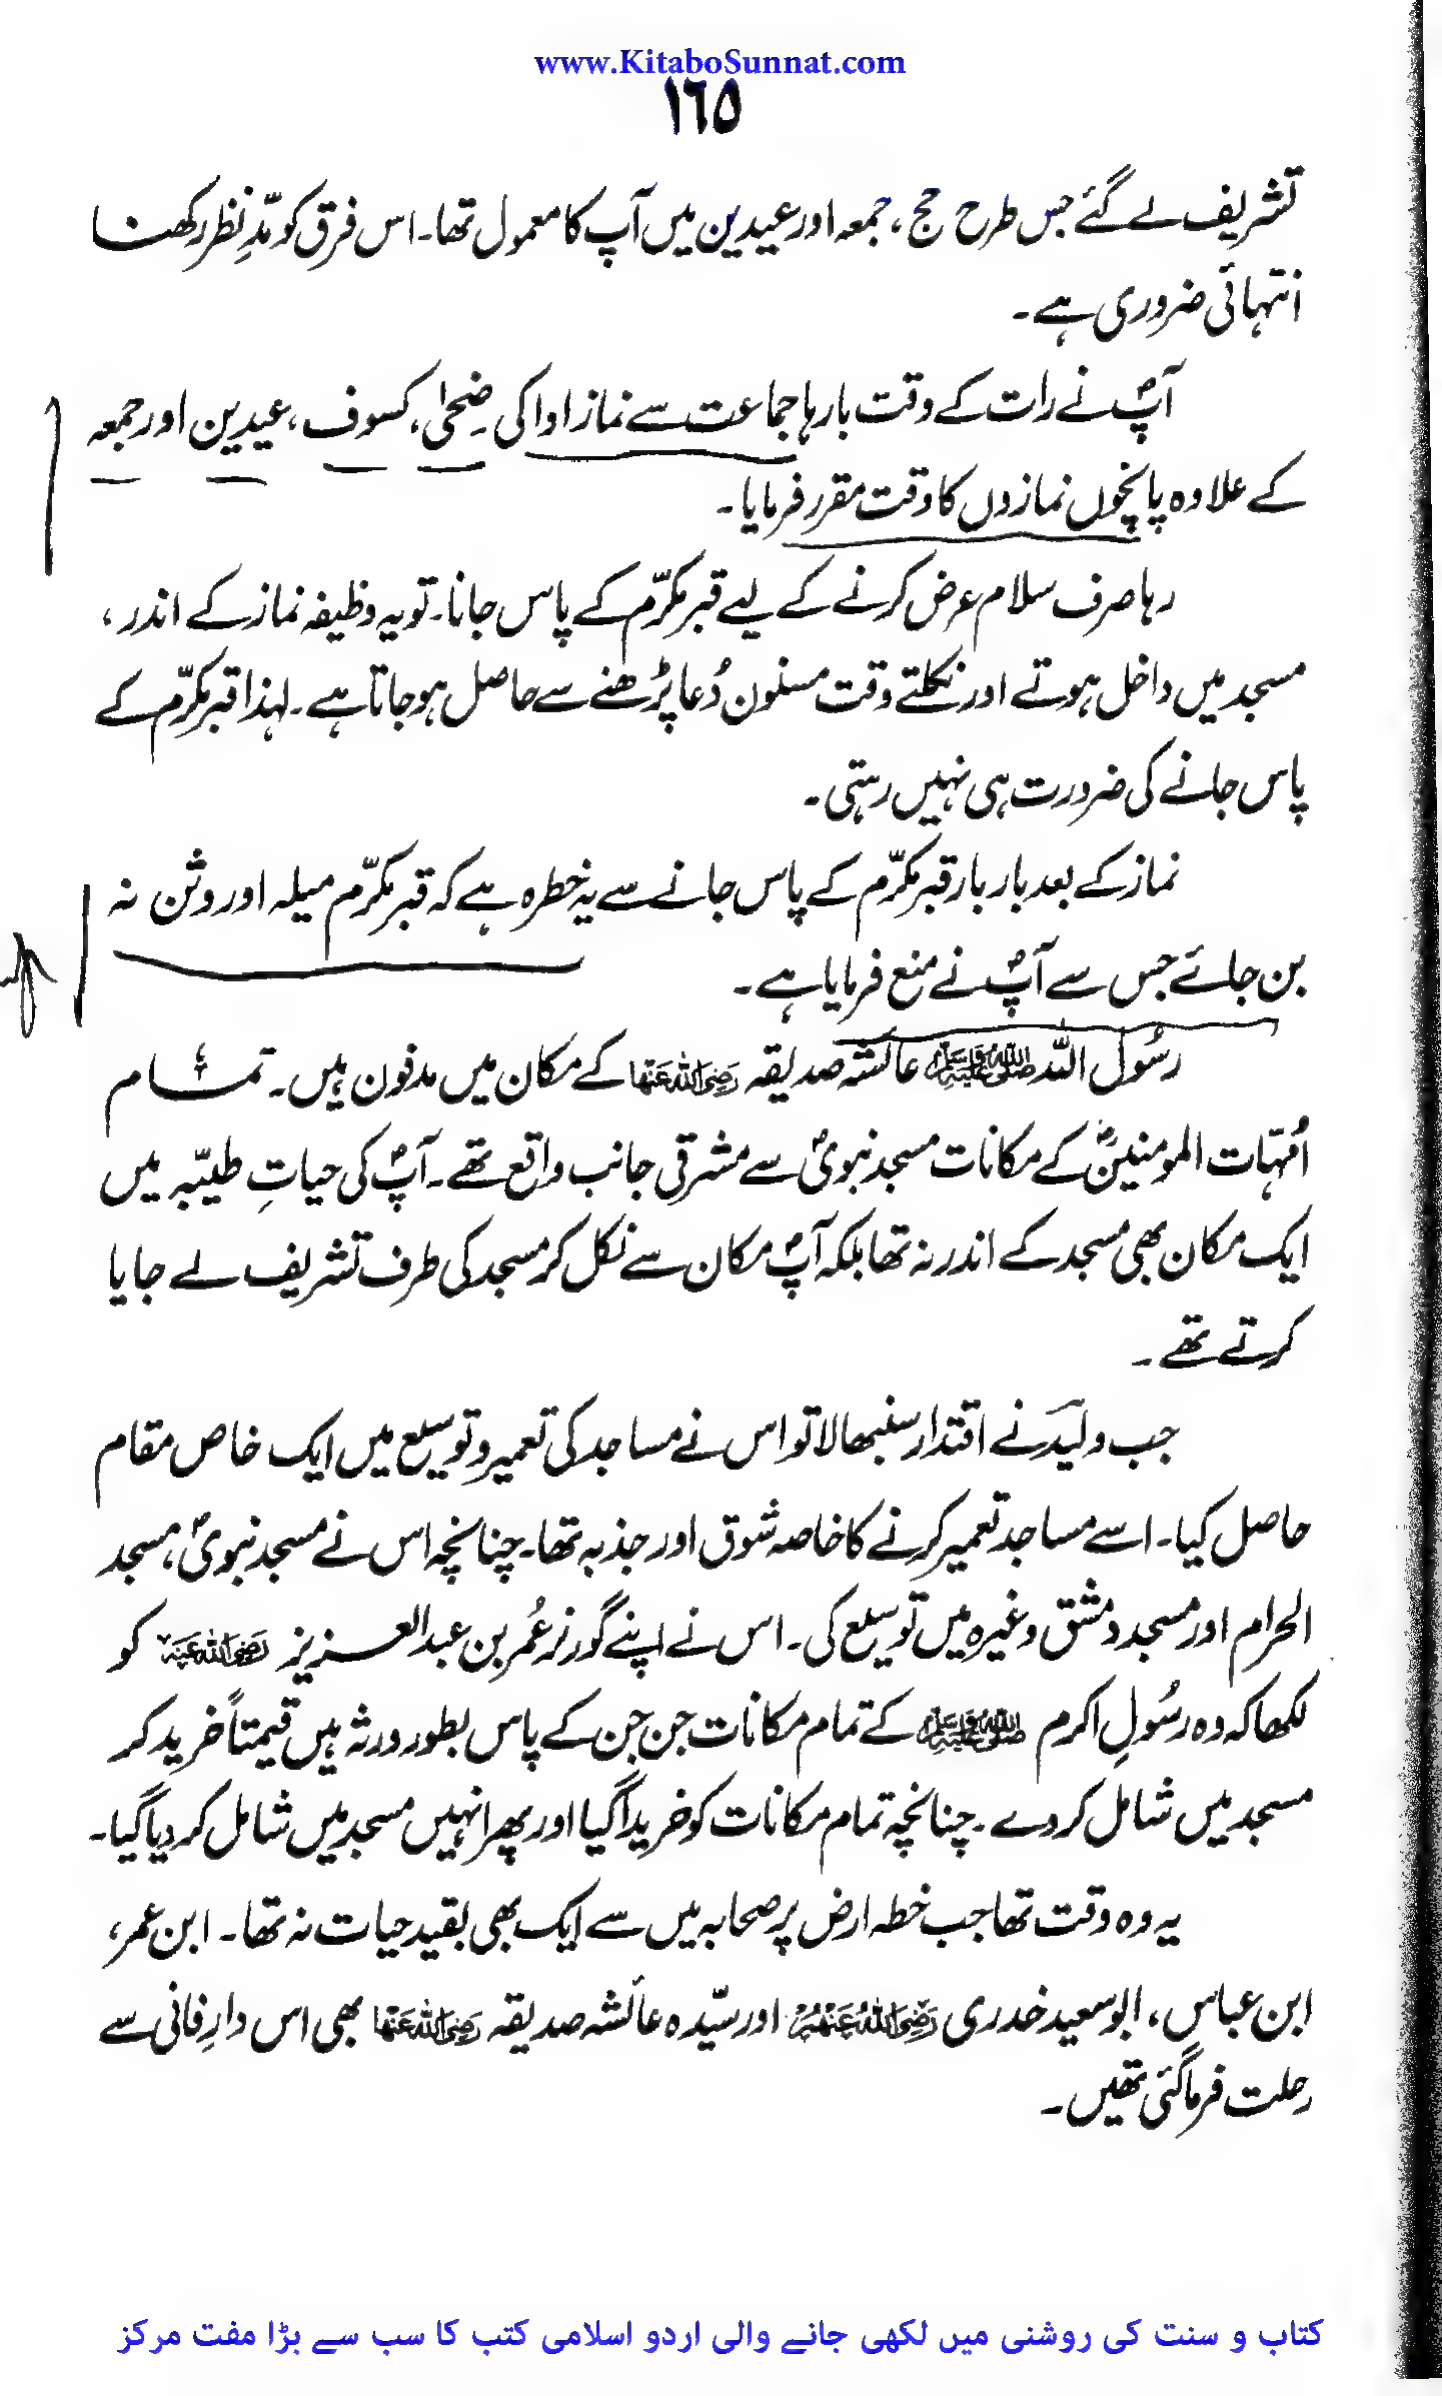 www.KitaboSunnat.com
١٦٥
تشریف لے گئے جس طرح حج ، جمعہ اور عیدین میں آپ کا معمول تھا۔ اس فرق کو مدِّ نظر رکھنا
انتہائی ضروری ہے۔
آپؐ نے رات کے وقت بارہا جماعت سے نماز ادا کی ضِحیٰ، کسوف ، عیدین اور جمعہ
کے علاوہ پانچوں نمازوں کا وقت مقرر فرمایا۔
رہا صرف سلام عرض کرنے کے لیے قبر مکرّم کے پاس جانا۔ تو یہ وظیفہ نماز کے اندر ،
مسجد میں داخل ہوتے اور نکلتے وقت مسنون دُعا پڑھنے سے حاصل ہو جاتا ہے۔ لہذا قبر مکرّم کے
پاس جانے کی ضرورت ہی نہیں رہتی۔
نماز کے بعد بار بار قبر مکرّم کے پاس جانے سے یہ خطرہ ہے کہ قبر مکرّم میلہ اور وثن نہ
بن جائے جس سے آپؐ نے منع فرمایا ہے۔
رسُول اللہ ﷺ عائشہ صدیقہ رَضِیَ اللہُ عَنْہَا کے مکان میں مدفون ہیں۔ تمام
اُمّہات المومنینؓ کے مکانات مسجد نبویؐ سے مشرقی جانب واقع تھے۔ آپؐ کی حیاتِ طیبّہ میں
ایک مکان بھی مسجد کے اندر نہ تھا بلکہ آپؐ مکان سے نکل کر مسجد کی طرف تشریف لے جایا
کرتے تھے۔
جب ولید نے اقتدار سنبھالا تو اس نے مساجد کی تعمیر و توسیع میں ایک خاص مقام
حاصل کیا۔ اسے مساجد تعمیر کرنے کا خاصہ شوق اور جذبہ تھا۔ چنانچہ اس نے مسجد نبویؐ، مسجد
الحرام اور مسجد دمشق وغیرہ میں توسیع کی۔ اس نے اپنے گورنر عُمر بن عبدالعزیز رَضِیَ اللہُ عَنْہ کو
لکھا کہ وہ رسُولِ اکرم ﷺ کے تمام مکانات جن جن کے پاس بطور ورثہ ہیں قیمتاً خرید کر
مسجد میں شامل کر دے ۔ چنانچہ تمام مکانات کو خریدا گیا اور پھر انہیں مسجد میں شامل کر دیا گیا۔
یہ وہ وقت تھا جب خطہ ارض پر صحابہ میں سے ایک بھی بقید حیات نہ تھا۔ ابن عمر،
ابن عباس ، ابو سعید خدری رَضِیَ اللہُ عَنْہُمْ اور سیّدہ عائشہ صدیقہ رَضِیَ اللہُ عَنْہَا بھی اس دارِ فانی سے
رحلت فرما گئی تھیں۔
کتاب و سنت کی روشنی میں لکھی جانے والی اردو اسلامی کتب کا سب سے بڑا مفت مرکز